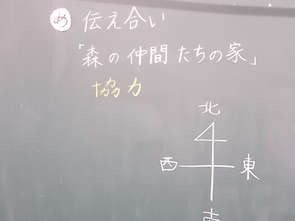 め 伝え合い
「森の仲間たちの家」
協力
北
西 東
南